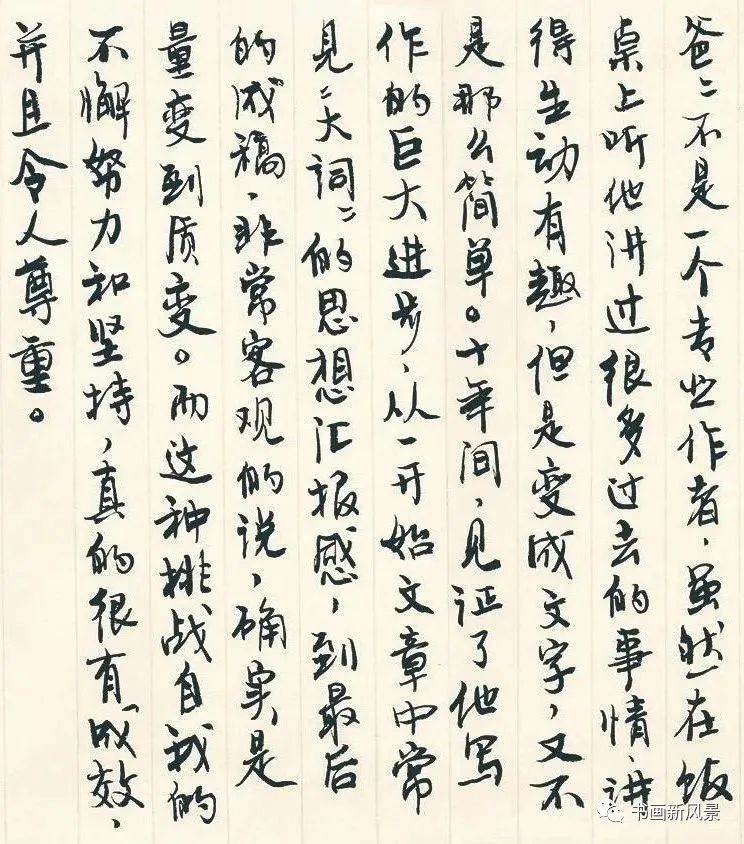 爸〻不是一个专业作者，虽然在饭
桌上听他讲过很多过去的事情，讲
得生动有趣，但是变成文字，又不
是那么简单。十年间，见证了他写
作的巨大进步，从一开始文章中常
见〻大词〻的思想汇报感，到最后
的成稿，非常客观的说，确实是
量变到质变。而这种挑战自我的
不懈努力和坚持，真的很有成效，
并且令人尊重。
书画新风景